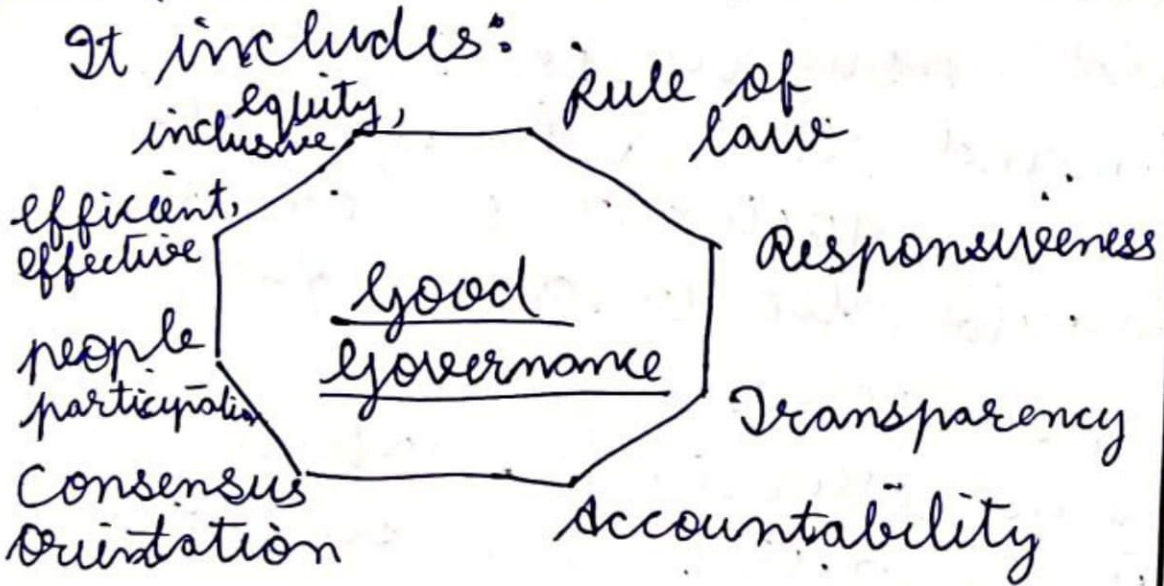 It includes:
equity,
inclusive
Rule of
law
efficient,
effective
Responsiveness
Good
Governance
people
participation
Transparency
Consensus
Orientation
Accountability